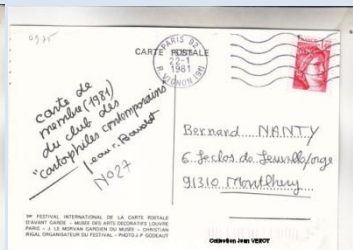 CARTE POSTALE
PARIS 82
22-1
1981
R. VIGNON (8e)
carte de
membre (1981)
du club des
"cartophiles contemporains
N° 27
Bernard NANTY
91310 Montlhéry
19e FESTIVAL INTERNATIONAL DE LA CARTE POSTALE
D'AVANT GARDE - MUSÉE DES ARTS DÉCORATIFS LOUVRE
PARIS - J. LE MORVAN GARDIEN DU MUSÉE - CHRISTIAN
RIGAL ORGANISATEUR DU FESTIVAL - PHOTO J.P. GODEAUT
Collection Jean VEROT